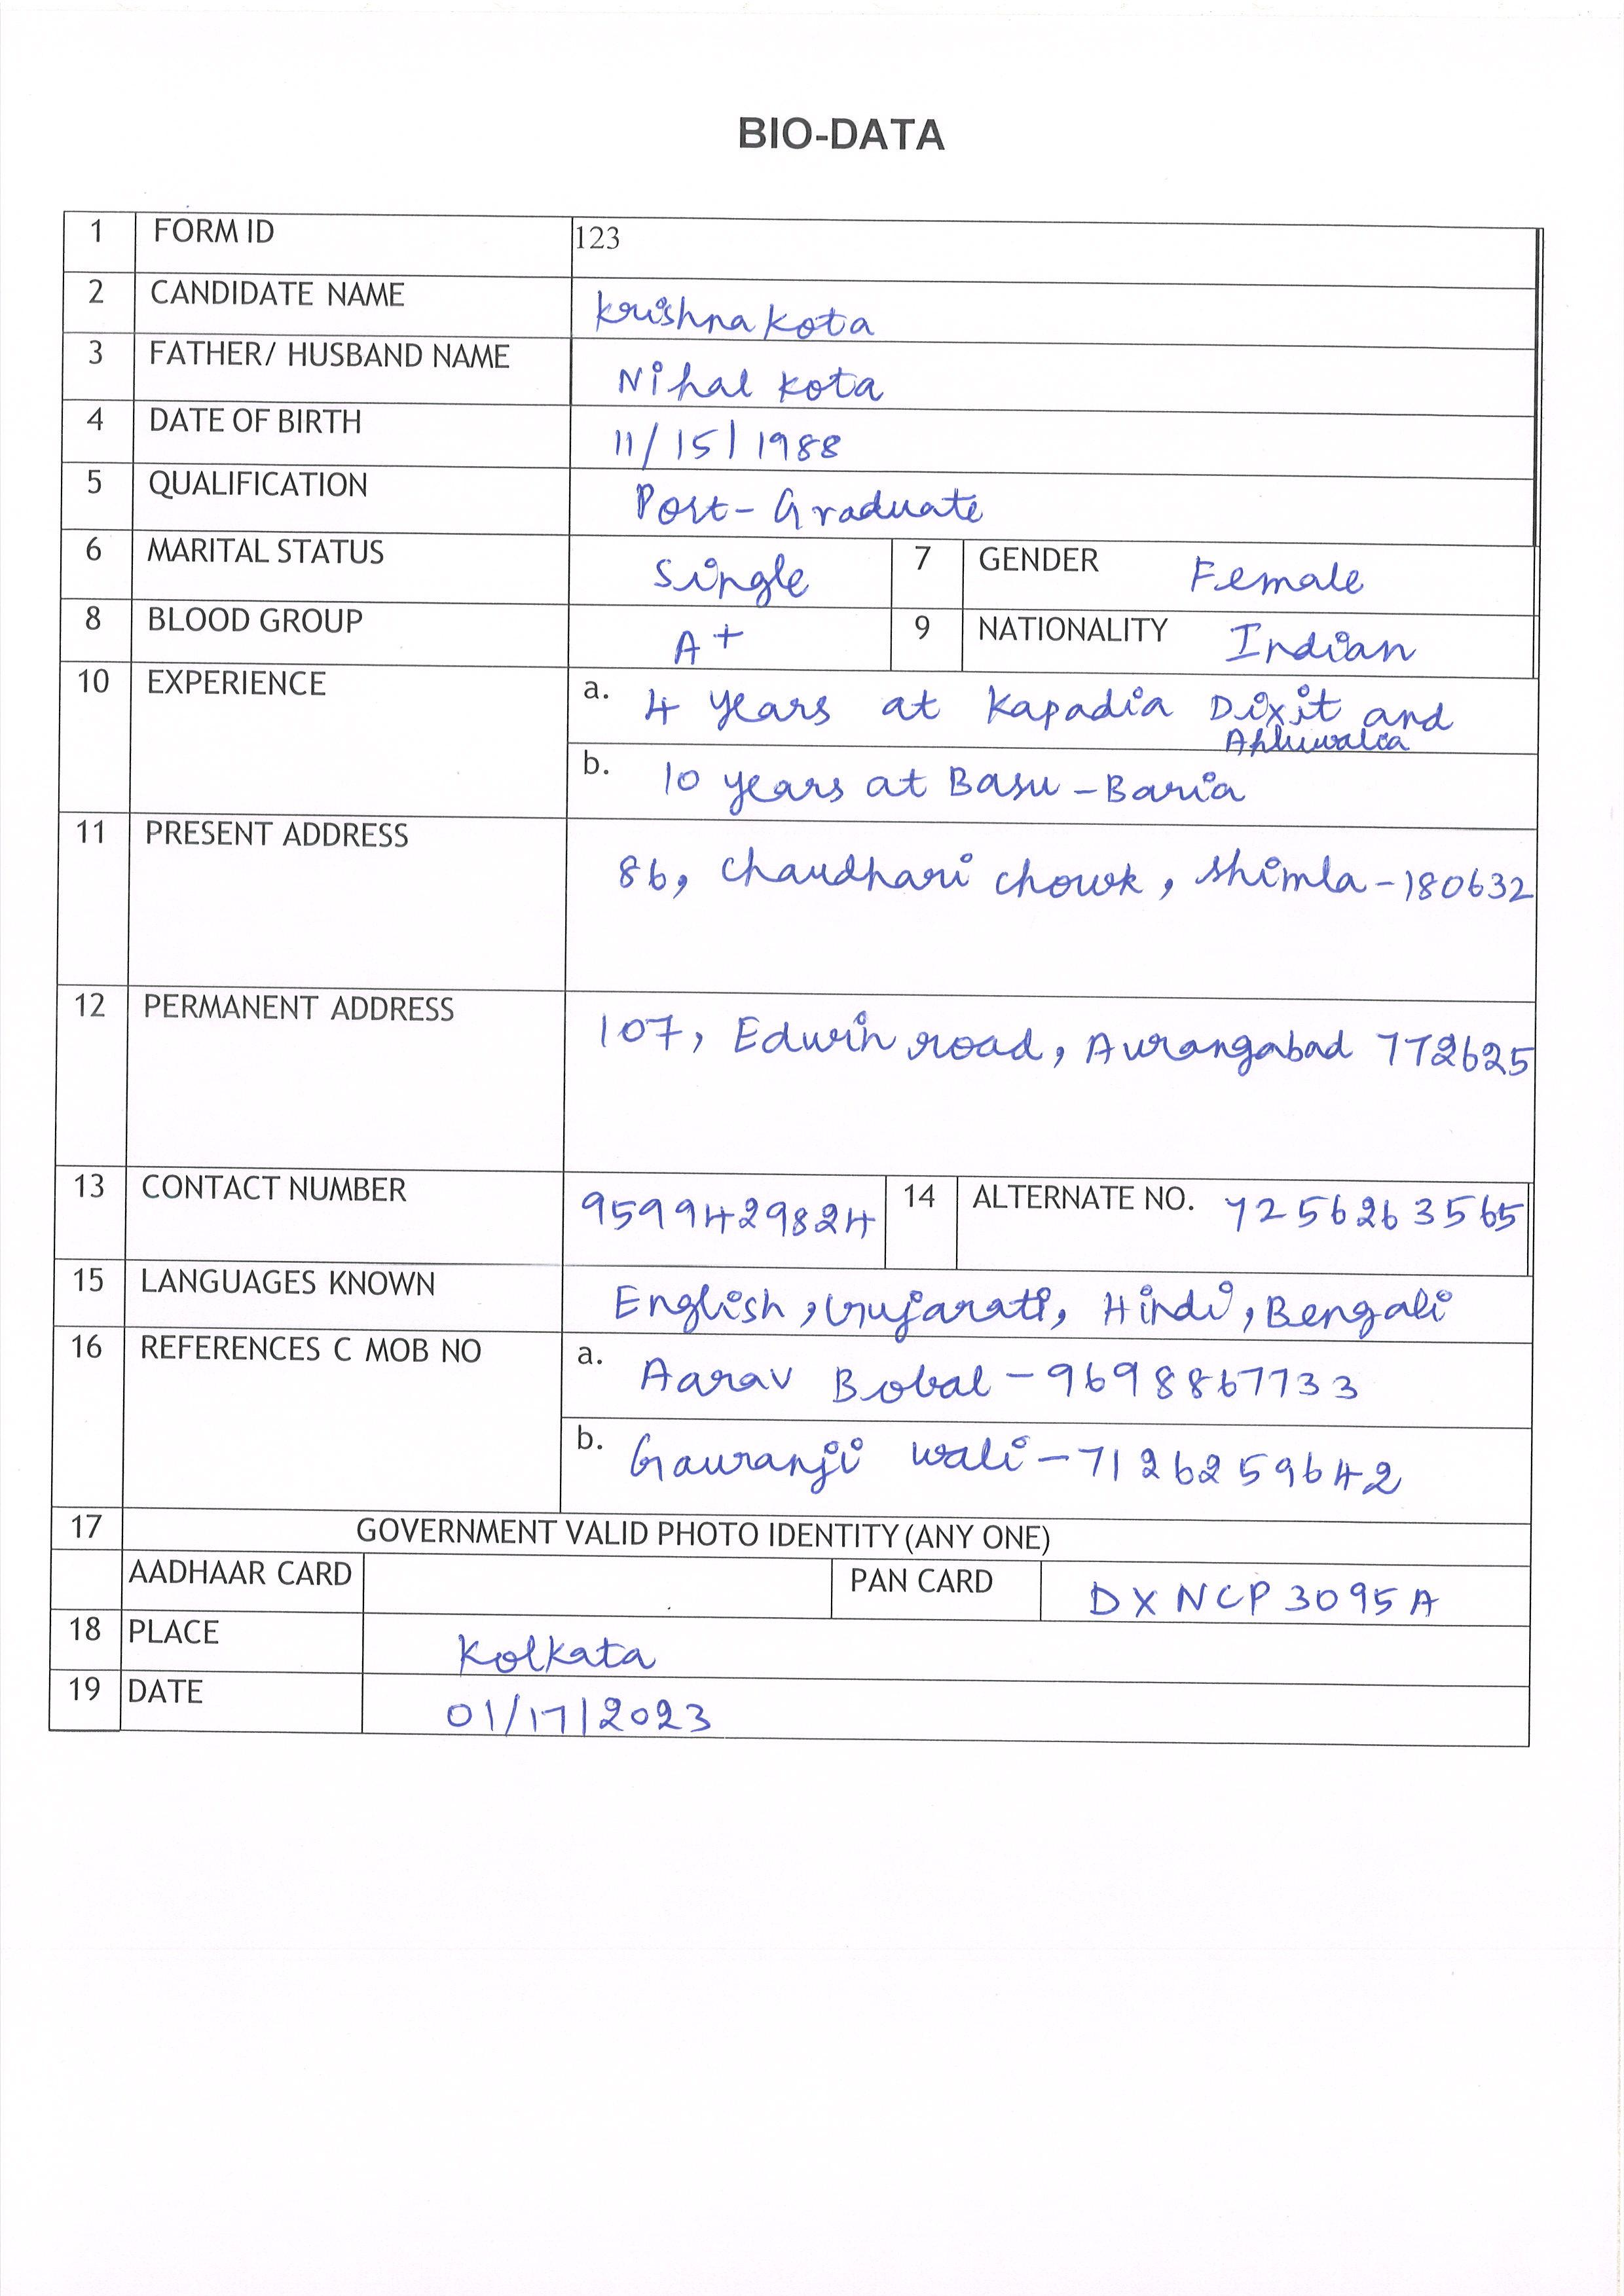 BIO-DATA
1 FORM ID 123
2 CANDIDATE NAME Krishna Kota
3 FATHER/ HUSBAND NAME Nihal Kota
4 DATE OF BIRTH 11/15/1988
5 QUALIFICATION Post-Graduate
6 MARITAL STATUS Single 7 GENDER Female
8 BLOOD GROUP A+ 9 NATIONALITY Indian
10 EXPERIENCE a. 4 years at Kapadia Dixit and
Ahluwalia
b. 10 years at Basu-Baria
11 PRESENT ADDRESS 86, Chaudhari Chowk, Shimla-180632
12 PERMANENT ADDRESS 107, Edwin road, Aurangabad 772625
13 CONTACT NUMBER 9599429824 14 ALTERNATE NO. 7256263565
15 LANGUAGES KNOWN English, Gujarati, Hindi, Bengali
16 REFERENCES C MOB NO a. Aarav Bobal-9698867733
b. Gauranji Wali-7126259642
17 GOVERNMENT VALID PHOTO IDENTITY (ANY ONE)
AADHAAR CARD PAN CARD DXNCP3095A
18 PLACE Kolkata
19 DATE 01/17/2023